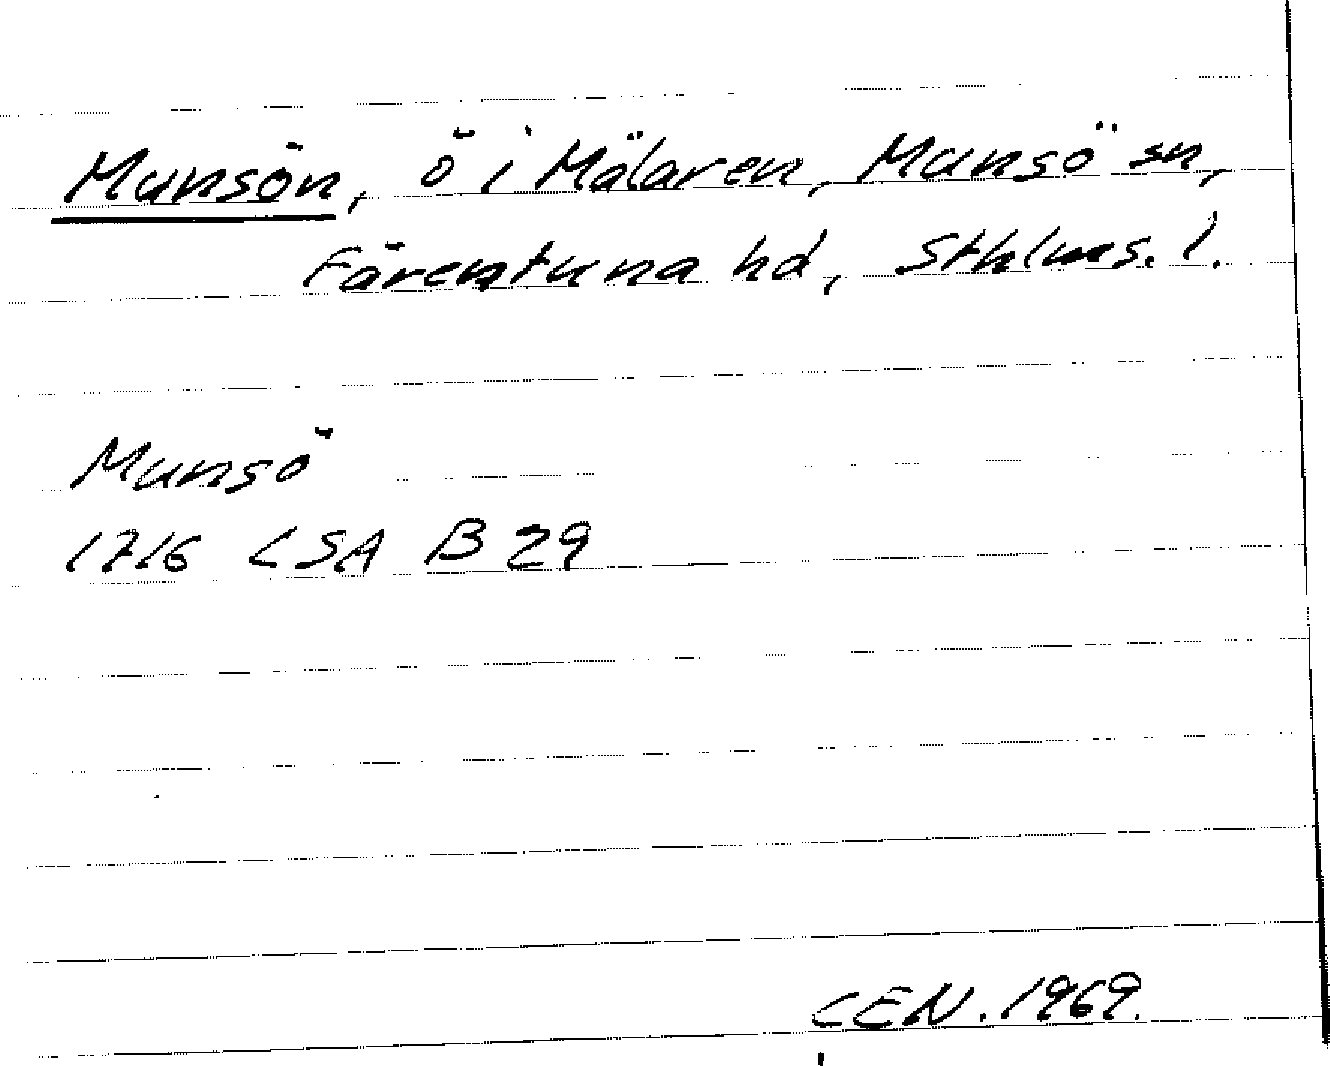 Munsön, ö i Mälaren, Munsö sn,
Färentuna hd, Sthlms. l.
Munsö
1716 LSA B 29
CEN. 1969.